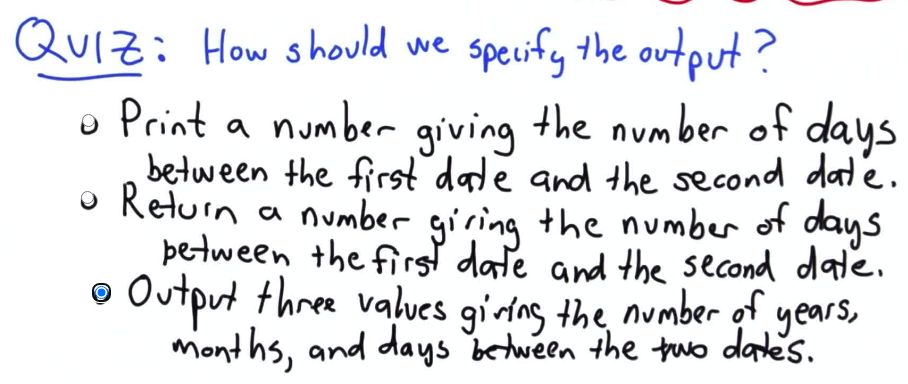 QUIZ: How should we specify the output?
Print a number giving the number of days
between the first date and the second date.
Return a number giving the number of days
between the first date and the second date.
Output three values giving the number of years,
months, and days between the two dates.